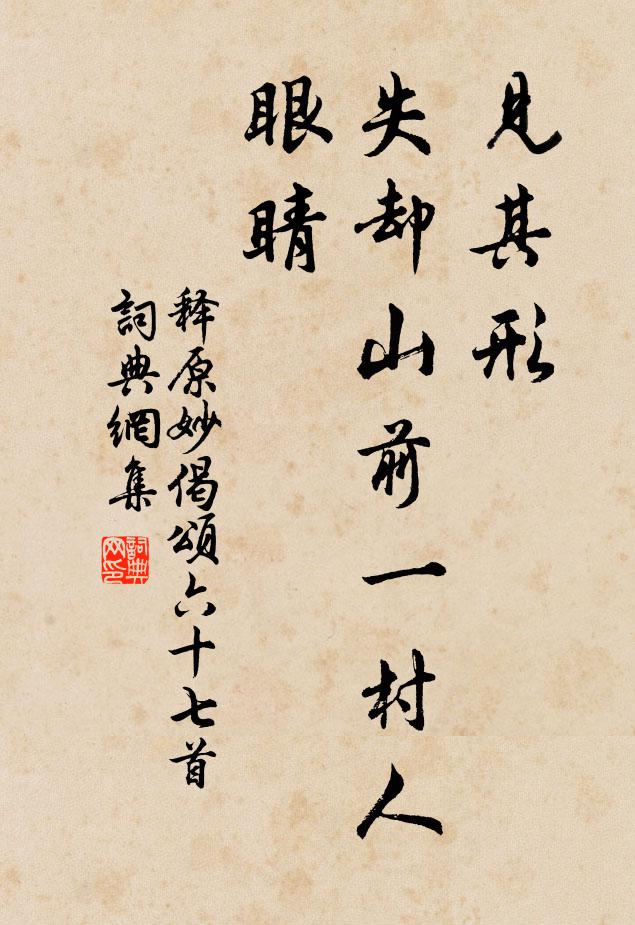 見其形
失却山前一村人
眼睛
释原妙偈頌六十七首
詞典網集
詞典網印